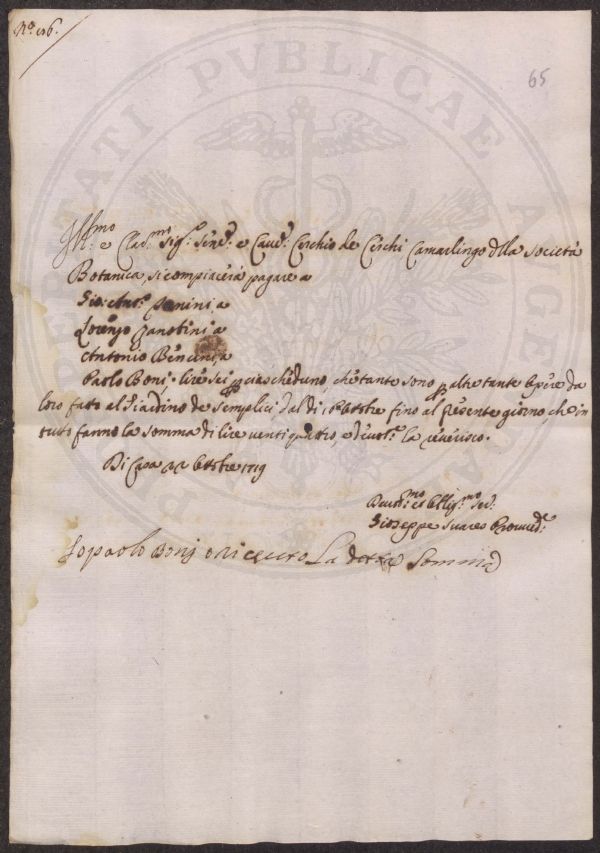 N.º 126.
65
Ill.mo e Clar.mo Sig.r Sen.e e Cav.e Cerchio de Cerchi Camarlingo della Società
Botanica, si compiacerà pagare a
Gio: Ant.o Janini a
Lorenzo Zanobini a
Antonio Bencini, a
Paolo Boni, lire sei p ciascheduno, che tante sono p altretante Opere da
loro fatto al Giardino de Semplici dal di Ottobre fino al presente giorno, che in
tutto fanno la somma di lire venti quattro, e la reverisco.
Di Casa 22 Ottobre 1719
Devot.mo et Obblig.mo Ser.
Gioseppe Suares Proved.e
Io paolo Bonj o riceuto La detta Somma
PROSPERITATI PVBLICAE AVGENDAE